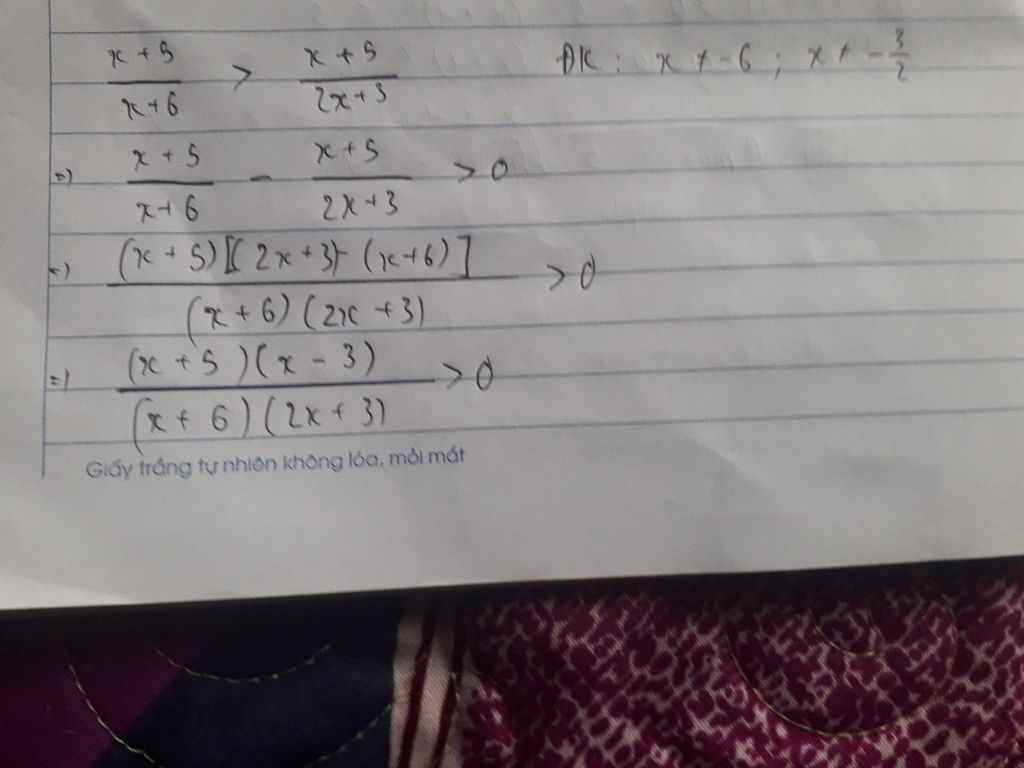 x + 5 / x + 6 > x + 5 / 2x + 3 ĐK : x ≠ -6 ; x ≠ - 3/2
=) x + 5 / x + 6 - x + 5 / 2x + 3 > 0
=) (x + 5)[(2x + 3) - (x + 6)] / (x + 6)(2x + 3) > 0
=) (x + 5)(x - 3) / (x + 6)(2x + 3) > 0
Giấy trắng tự nhiên không lóa, mỏi mắt